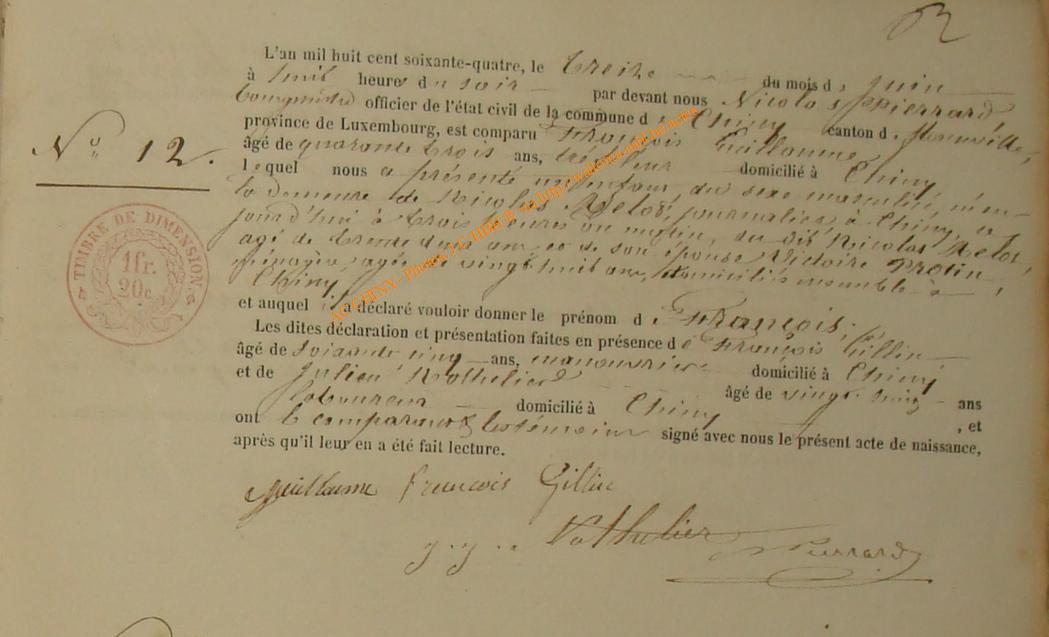 L'an mil huit cent soixante-quatre, le treize du mois de juin
à huit heures du soir par devant nous Nicolas Pierrard
bourgmestre officier de l'état civil de la commune de Chiny canton de Florenville,
province de Luxembourg, est comparu François Guillaume
âgé de quarante trois ans, domicilié à Chiny,
lequel nous a présenté un enfant du sexe masculin, né en
la demeure de Nicolas Melot, journalier, à Chiny, ce
jourd'hui à trois heures du matin, du dit Nicolas Melot,
âgé de trente deux ans, et de son épouse Victoire Protin,
ménagère, âgée de vingt huit ans, domiciliés ensemble à
Chiny,
et auquel il a déclaré vouloir donner le prénom de François.
Les dites déclaration et présentation faites en présence de François Gillin
âgé de soixante cinq ans, manouvrier domicilié à Chiny
et de Julien Nothelier âgé de vingt cinq ans
laboureur domicilié à Chiny, et
ont le comparant & les témoins signé avec nous le présent acte de naissance,
après qu'il leur en a été fait lecture.
Guillaume François Gillin
j. j. Nothelier Pierrard
N° 12.
TIMBRE DE DIMENSION
1fr.
20c.